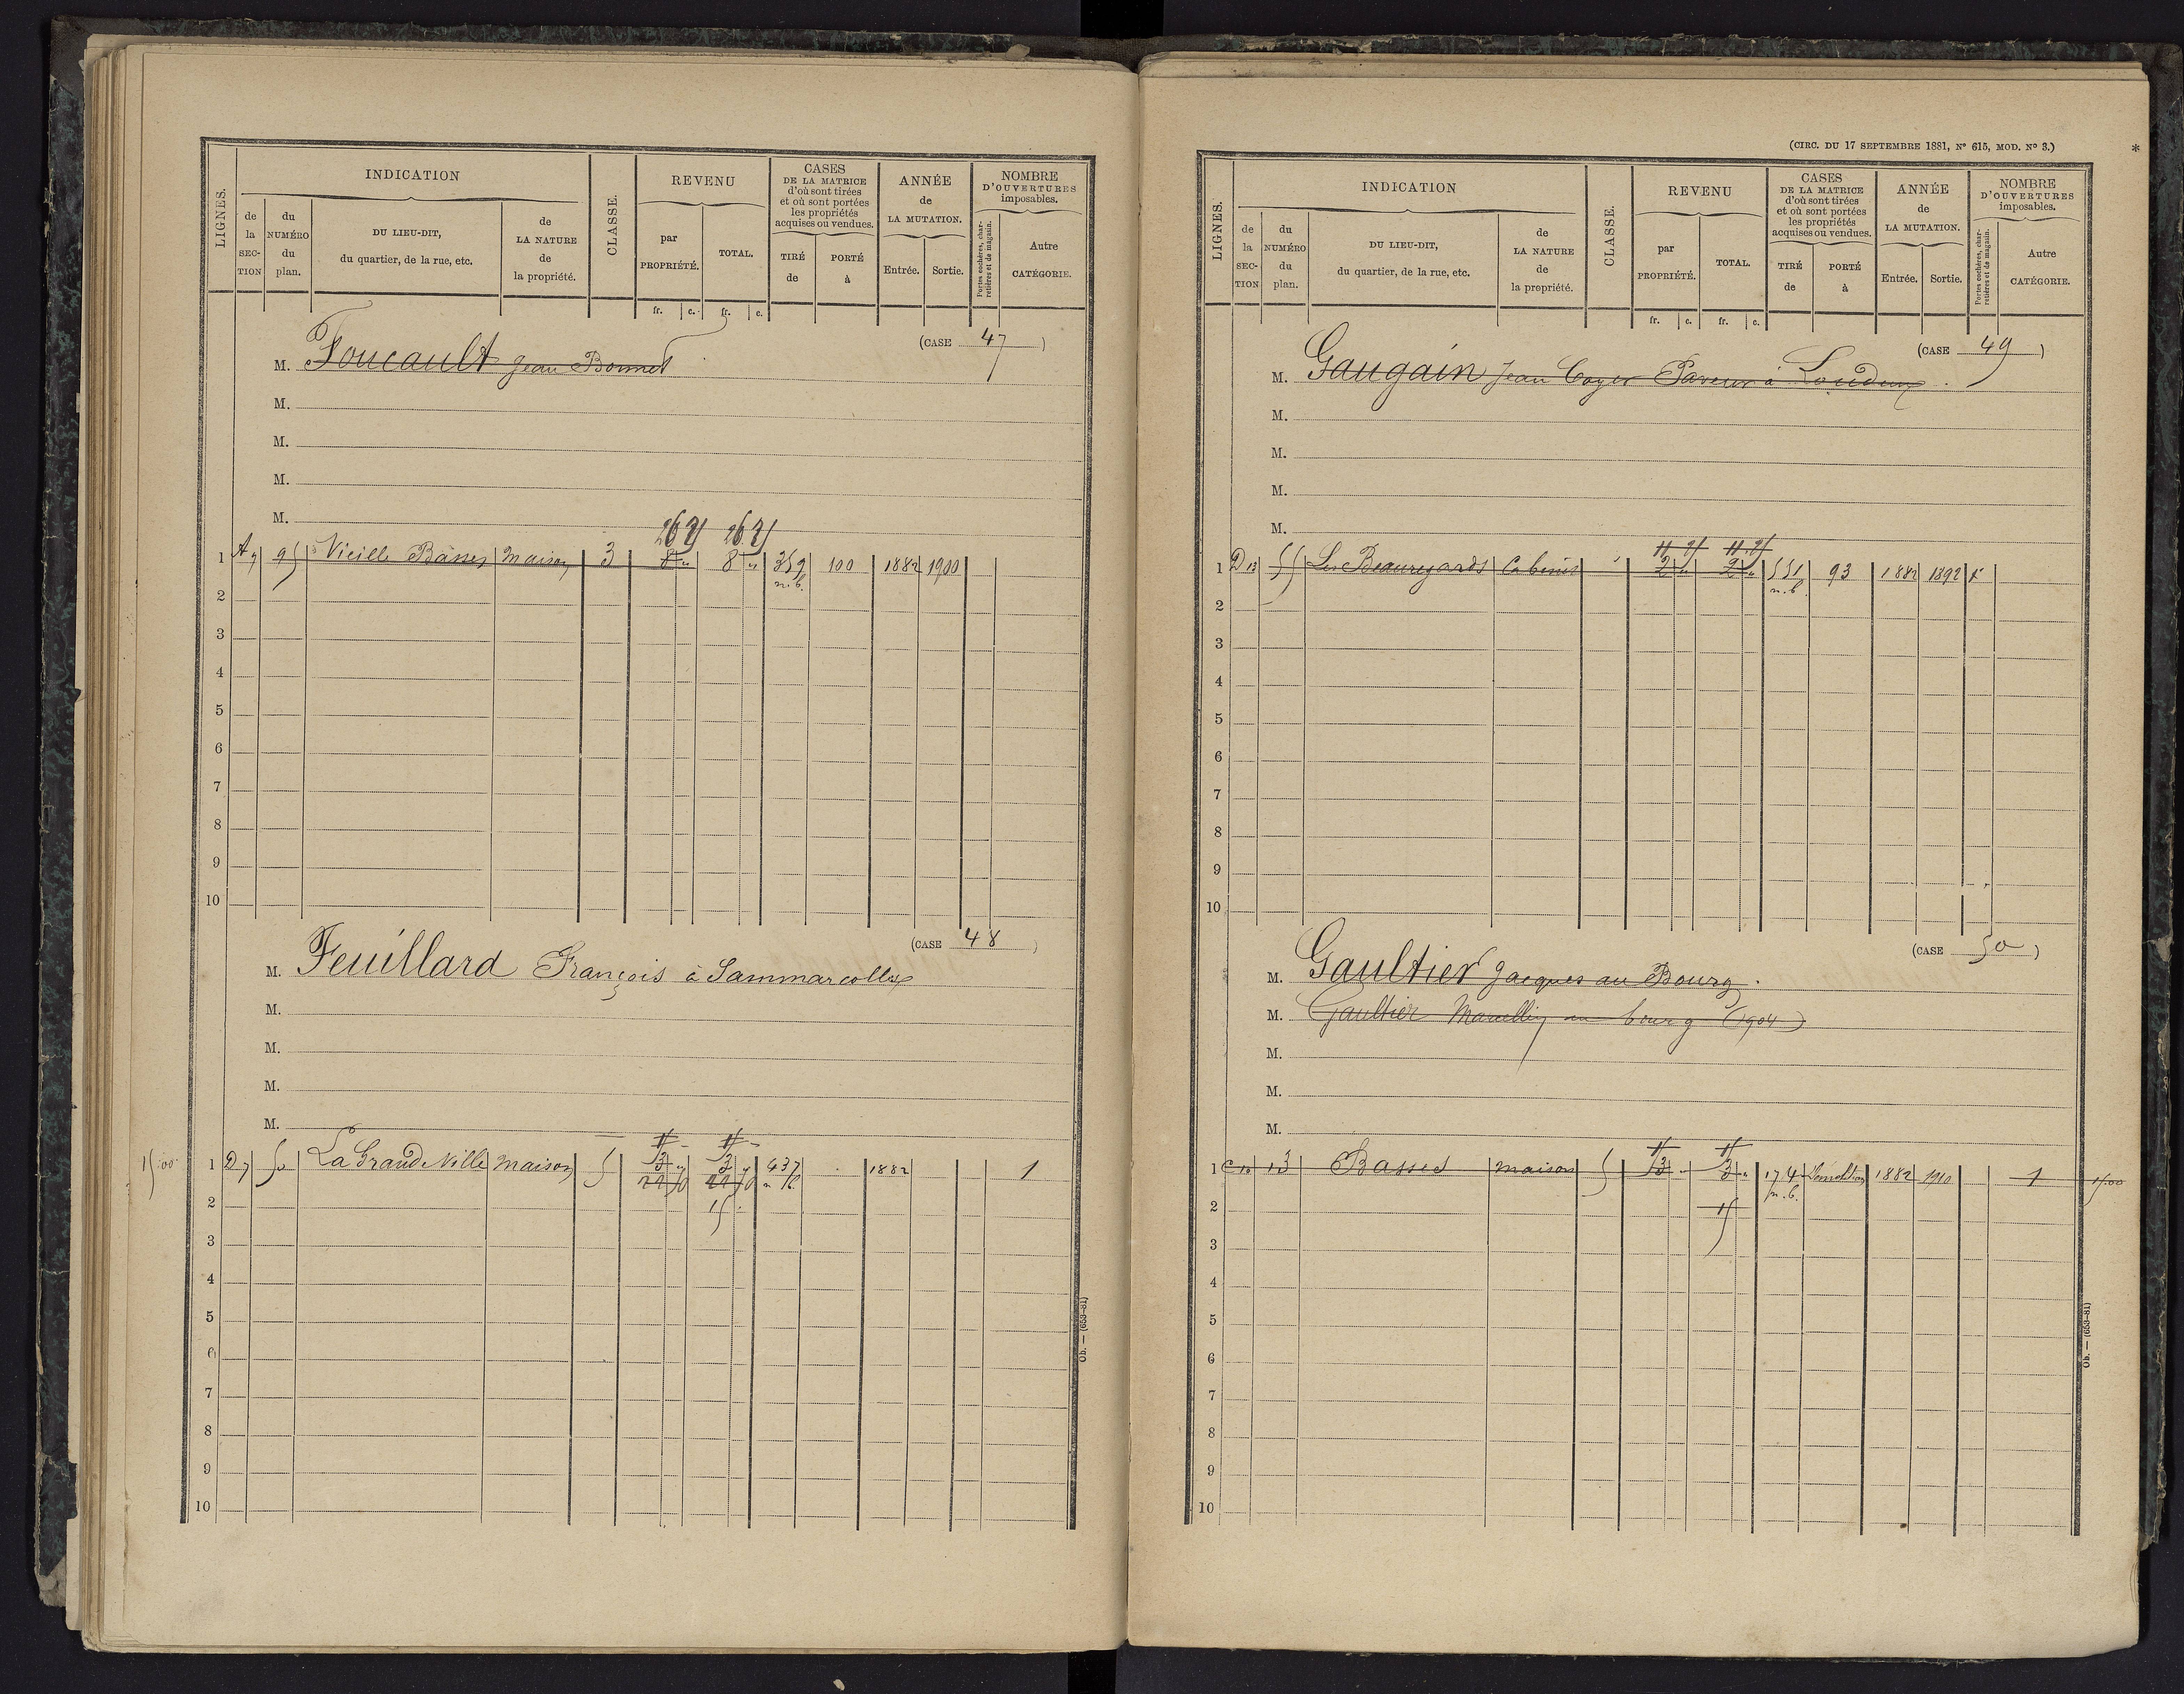 INDICATION
LIGNES.
de la SECTION
du NUMÉRO du plan.
DU LIEU-DIT, du quartier, de la rue, etc.
de LA NATURE de la propriété.
CLASSE.
REVENU
par PROPRIÉTÉ.
TOTAL.
CASES DE LA MATRICE d'où sont tirées et où sont portées les propriétés acquises ou vendues.
TIRÉ de
PORTÉ à
ANNÉE de LA MUTATION.
Entrée.
Sortie.
NOMBRE D'OUVERTURES imposables.
Portes cochères, charretières et de magasin.
Autre CATÉGORIE.
fr. c. fr. c.
(CASE 47)
M. Foucault Jean Bonnet
M.
M.
M.
M.
26 25 26 25
1 A7 95 Vieille Basses Maison 3 8 " 8 " 359 100 1882 1900
n.b.
2
3
4
5
6
7
8
9
10
(CASE 48)
M. Feuillard François à Sammarcolles
M.
M.
M.
M.
15.00 1 D7 50 La Grande Ville Maison 5 3 " 3 " 437 1882 1
15
2
3
4
5
6
7
8
9
10
Ob. — (653-81)
(CIRC. DU 17 SEPTEMBRE 1881, Nº 615, MOD. Nº 3.)
*
INDICATION
LIGNES.
de la SECTION
du NUMÉRO du plan.
DU LIEU-DIT, du quartier, de la rue, etc.
de LA NATURE de la propriété.
CLASSE.
REVENU
par PROPRIÉTÉ.
TOTAL.
CASES DE LA MATRICE d'où sont tirées et où sont portées les propriétés acquises ou vendues.
TIRÉ de
PORTÉ à
ANNÉE de LA MUTATION.
Entrée.
Sortie.
NOMBRE D'OUVERTURES imposables.
Portes cochères, charretières et de magasin.
Autre CATÉGORIE.
fr. c. fr. c.
(CASE 49)
M. Gaugain Jean Coyer Paveur à Loudun.
M.
M.
M.
M.
11.25 11.25
1 D13 55 Les Beauregards Cabinet 2 " 2 " 551 93 1882 1892
n.b.
2
3
4
5
6
7
8
9
10
(CASE 50)
M. Gaultier Jacques au Bourg.
M. Gaultier Marcellin au bourg (1904)
M.
M.
M.
1 C10 13 Basses maison 5 3 " 3 " 174 Démolition 1882 1910 1 15.00
n.b.
15
2
3
4
5
6
7
8
9
10
Ob. — (653-81)